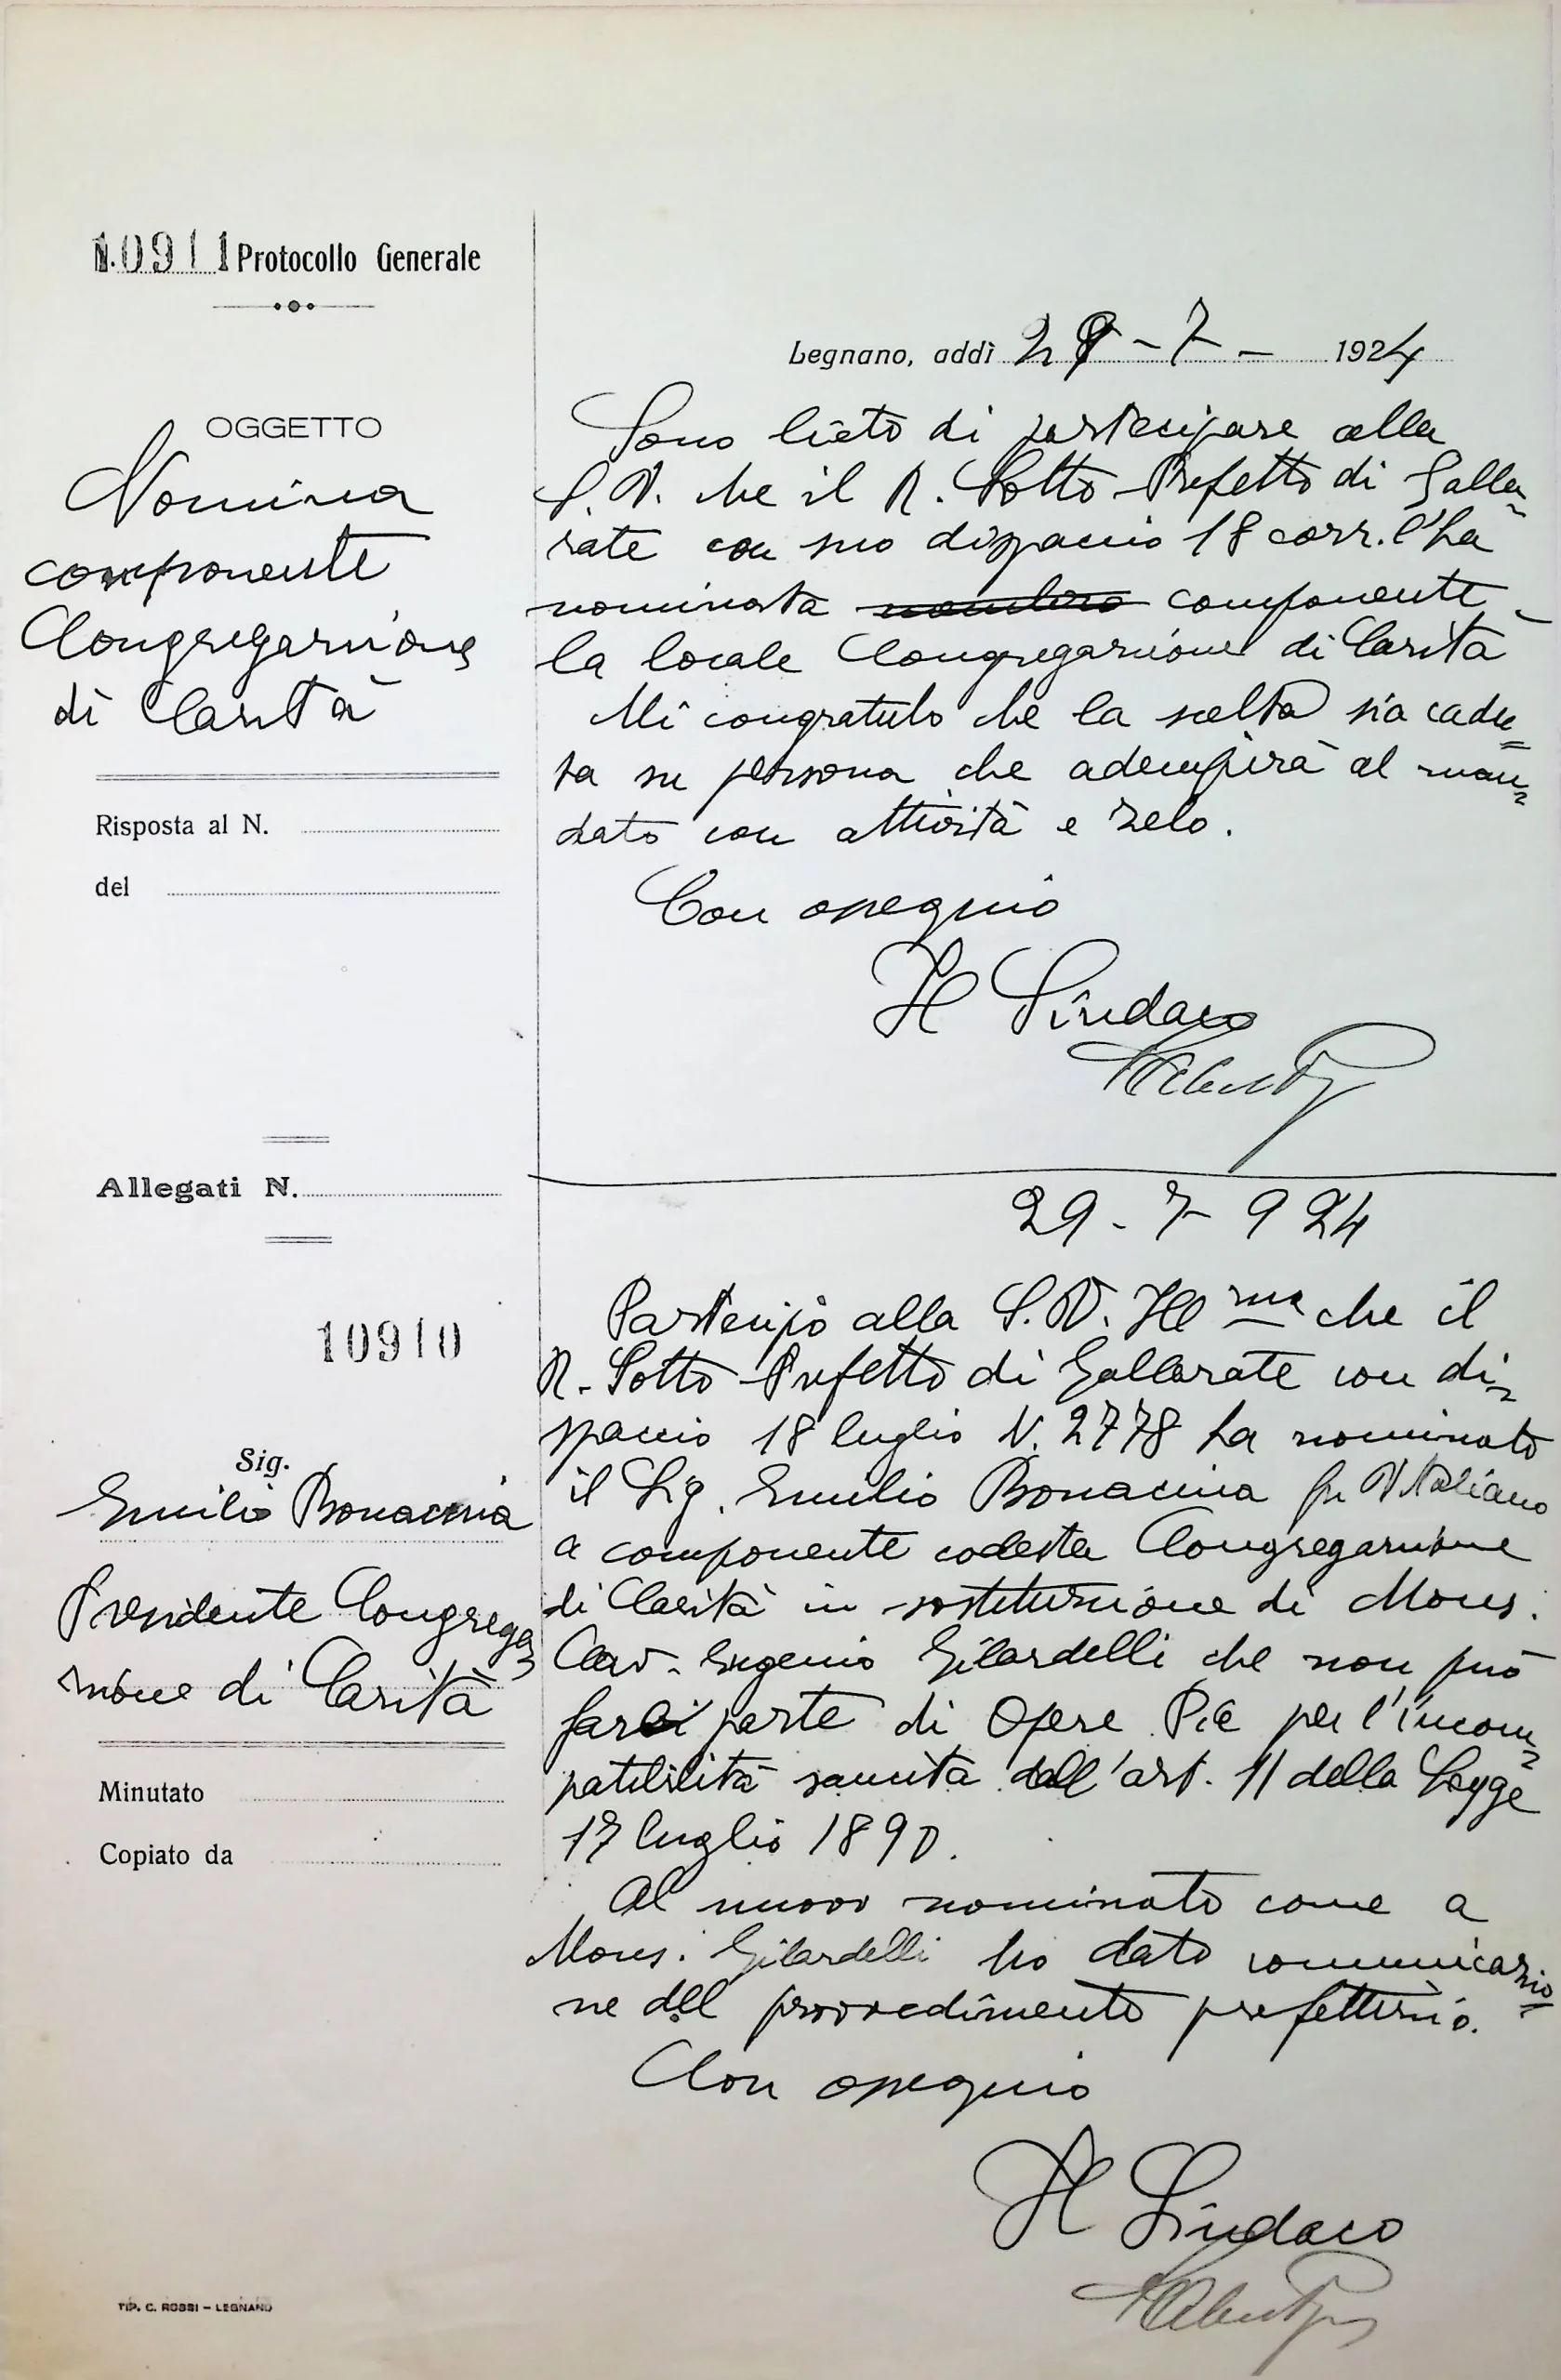 N. 10911 Protocollo Generale
OGGETTO
Nomina
componente
Congregazione
di Carità
Risposta al N.
del
Allegati N.
10910
Sig.
Emilio Bonacina
Presidente Congrega
zione di Carità
Minutato
Copiato da
TIP. C. ROSSI – LEGNANO
Legnano, addì 29 - 7 - 1924
Sono lieto di partecipare alla
S. V. che il R. Sotto Prefetto di Galla=
rate con suo dispaccio 18 corr. l'ha
nominata membro componente
la locale Congregazione di Carità
Mi congratulo che la scelta sia cadu=
ta su persona che adempirà al man=
dato con attività e zelo.
Con ossequio
Il Sindaco
29 - 7 924
Partecipo alla S. V. Ill ma che il
R. Sotto Prefetto di Gallarate con di=
spaccio 18 luglio N. 2778 ha nominato
il Sig. Emilio Bonacina fu Vitaliano
a componente codesta Congregazione
di Carità in sostituzione di Mons.
Cav. Eugenio Gilardelli che non può
far parte di Opere Pie per l'incom=
patibilità sancita dall'art. 11 della Legge
17 luglio 1890.
Al nuovo nominato come a
Mons. Gilardelli ho dato comunicazio=
ne del provvedimento prefettizio.
Con ossequio
Il Sindaco